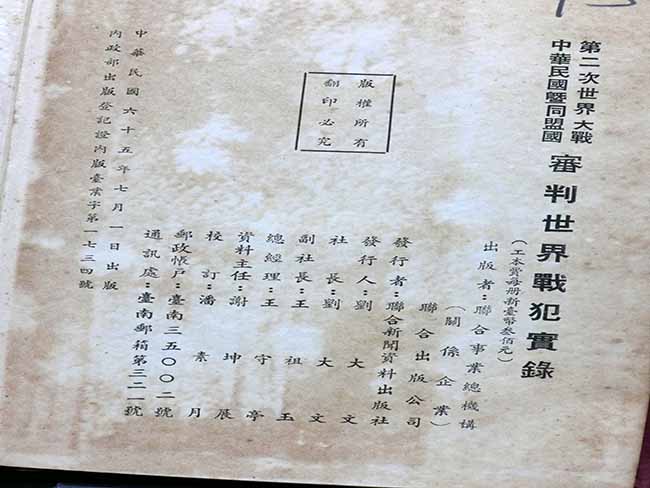 第二次世界大戰
中華民國暨同盟國
審判世界戰犯實錄
(工本費每册新臺幣叁佰元)
出版者:聯合事業總機構
(關係企業)
聯合出版公司
發行者:聯合新聞資料出版社
發行人:劉大文
社長:劉大文
副社長:王祖玉
總經理:王守亭
資料主任:謝坤展
校訂:潘素月
郵政帳戶:臺南三五〇〇二號
通訊處:臺南郵箱第三二一號
版權所有
翻印必究
中華民國六十五年七月一日出版
內政部出版登記證內版臺業字第一七三四號